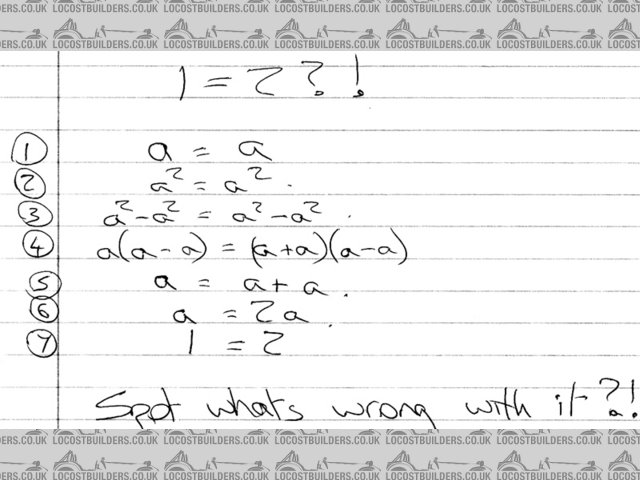 LOCOSTBUILDERS.CO.UK LOCOSTBUILDERS.CO.UK LOCOSTBUILDERS.CO.UK LOCOSTBUILDERS.CO.UK
1 = 2?!
① a = a
② a² = a².
③ a²-a² = a²-a².
④ a(a-a) = (a+a)(a-a)
⑤ a = a+a.
⑥ a = 2a.
⑦ 1 = 2
Spot whats wrong with it?!
LOCOSTBUILDERS.CO.UK LOCOSTBUILDERS.CO.UK LOCOSTBUILDERS.CO.UK LOCOSTBUILDERS.CO.UK